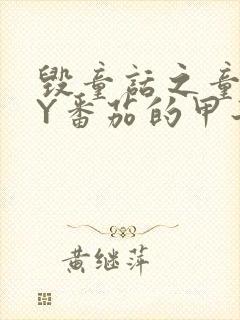 毁童话之童
Y番茄的甲
黄继萍